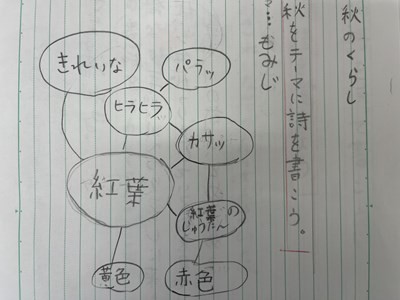 秋のくらし
秋をテーマに詩を書こう。
…もみじ
きれいな
パラッ
ヒラヒラ
カサッ
紅葉
紅葉の
じゅうたん
黄色
赤色